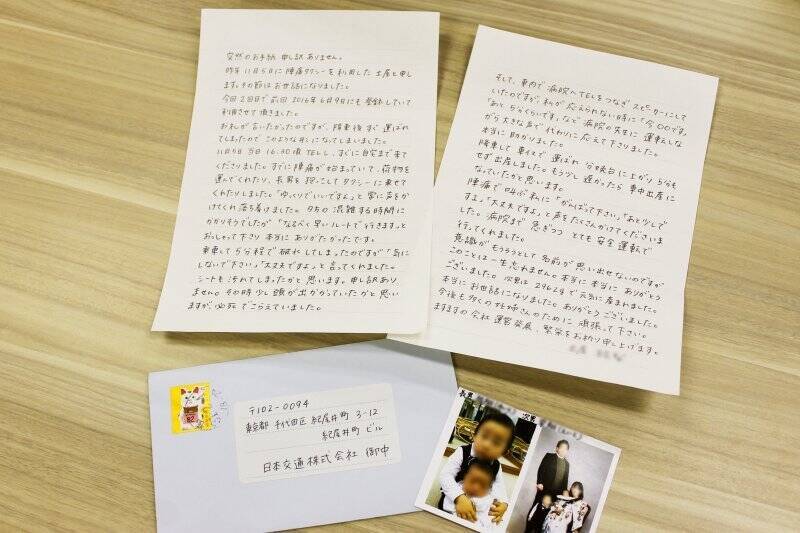 突然のお手紙 申し訳ありません。
昨年11月5日に陣痛タクシーを利用した 土屋と申し
ます。その節はお世話になりました。
今回2回目で前回2016年6月9日にも登録していて
利用させて頂きました。
お礼が言いたかったのですが、降車後すぐ運ばれ
てしまったのでこのような形になってしまいました。
11月5日当日16:30頃TELし、すぐに自宅まで来て
くださりました。すでに陣痛が始まっていて、荷物を
運んでくれたり、長男を抱っこしてタクシーに乗せて
くれたりしました。「ゆっくりでいいですよ」と常に声を
かけてくれ落ち着けました。夕方の混雑する時間に
かかりそうでしたが「なるべく早いルートで行きます」と
おっしゃって下さり本当にありがたかったです。
乗車して5分程で破水してしまったのですが「気に
しないで下さい」「大丈夫ですよ」と言ってくれました。
シートも汚れてしまったかと思います。申し訳あり
ません。その時少し頭が出かかっていたかと思い
ますが、必死でこらえていました。
そして、車内で病院へTELをつなぎスピーカーにして
いたのですが、私が応えられない時に「今〇〇です。」
「あと5分くらいです。」など病院の先生に運転しな
がら大きな声で代わりに応えて下さりました。
本当に助かりました。
降車して車イスで運ばれ分娩台に上がり5分も
せず出産しました。もう少し遅かったら車中出産に
なっていたかと思います。
陣痛で叫ぶ私に「がんばって下さい」「あと少しで
すよ」「大丈夫ですよ」と声をたくさんかけてくださいま
した。病院まで急ぎつつとても安全運転で
行ってくれました。
意識がもうろうとして名前が思い出せないのですが
このことは一生忘れません。本当に本当にありがとう
ございました。次男は2962gで元気に産まれました。
本当にお世話になりました。ありがとうございました。
今後も多くの妊婦さんのために頑張って下さい。
ますますの会社運営発展、繁栄をお祈り申し上げます。
〒102-0094
東京都 千代田区 紀尾井町 3-12
紀尾井町ビル
日本交通株式会社 御中
長男
次男